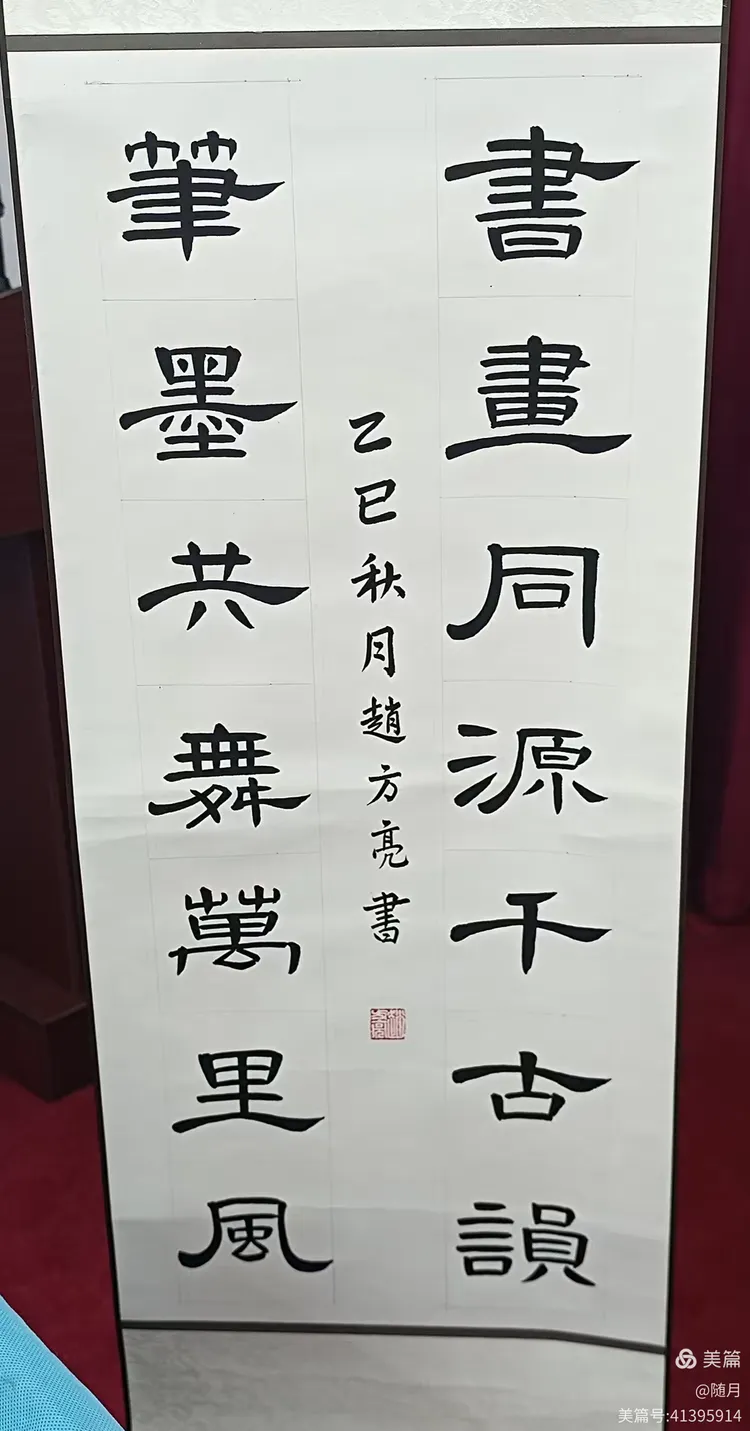 書畫同源千古韻
筆墨共舞萬里風
乙巳秋月趙方亮書
美篇
@随月
美篇号:41395914